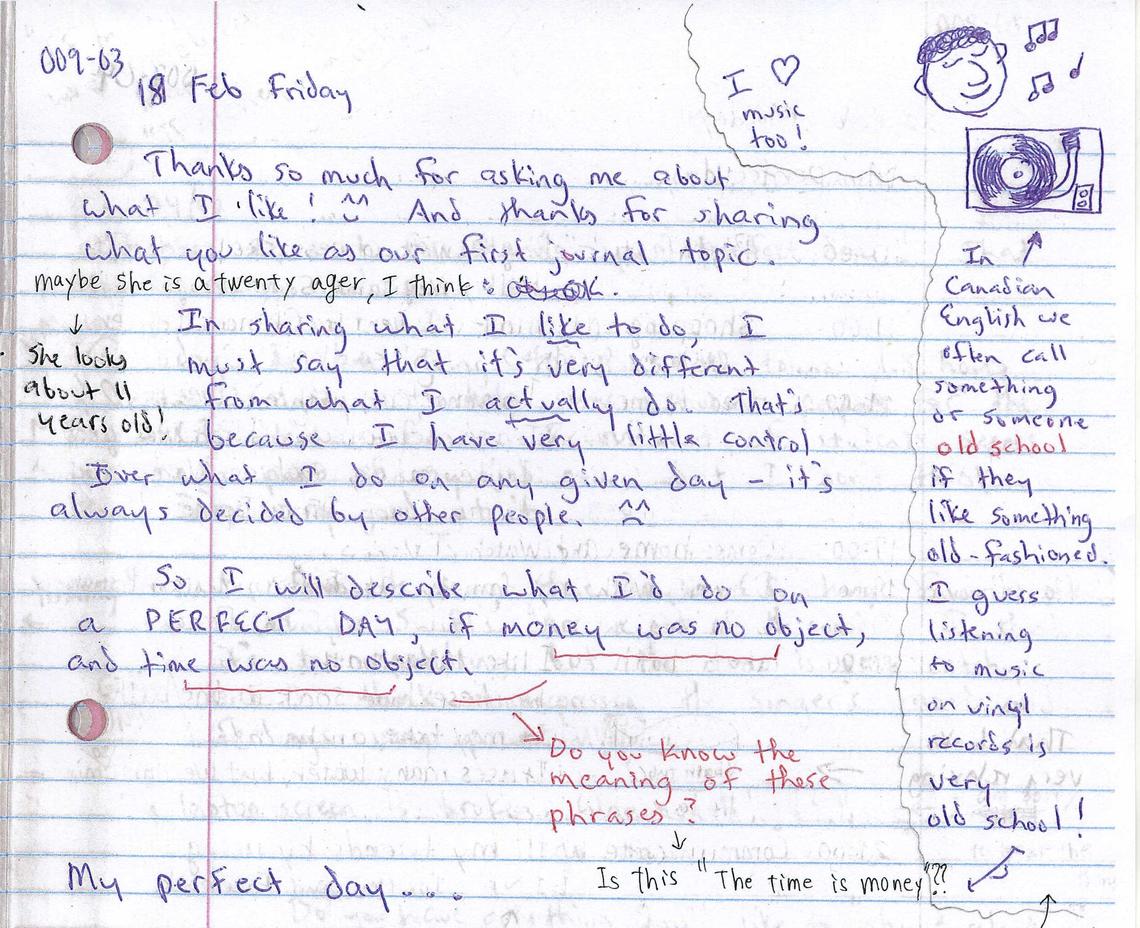 009-03
18 Feb Friday
I ♡
music
too!
Thanks so much for asking me about
what I like! ^^ And thanks for sharing
what you like as our first journal topic.
maybe she is a twenty ager, I think :
↓
She looks
about 11
years old!
In sharing what I like to do, I
must say that it's very different
from what I actually do. That's
because I have very little control
over what I do on any given day – it's
always decided by other people. ^^
So I will describe what I'd do on
a PERFECT DAY, if money was no object,
and time was no object.
Do you know the
meaning of these
phrases?
↓
Is this "The time is money"??
My perfect day...
In
Canadian
English we
often call
something
or someone
old school
if they
like something
old-fashioned.
I guess
listening
to music
on vinyl
records is
very
old school!